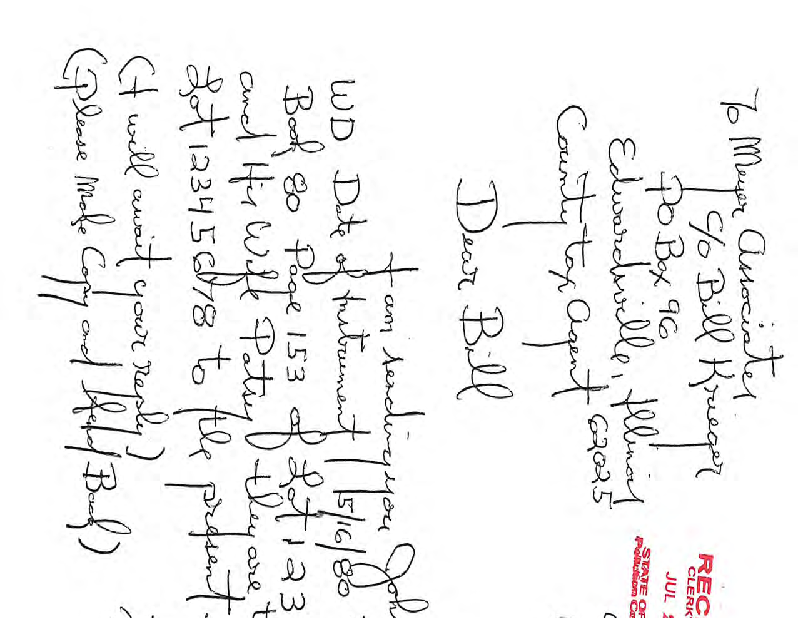 To Meyer Associates
c/o Bill Krueger
PO Box 96
Edwardsville, Illinois 62025
County tax Agent
Dear Bill
I am sending you Joh
WD Date of Instrument 5/16/80
Book 80 Page 153 of Lot 123
and His Wife Patsy they are t
Lot 12345678 to the present
(I will await your reply)
(Please Make Copy and Send Back)
REC
CLERK
JUL 2
STATE OF
Pollution Co